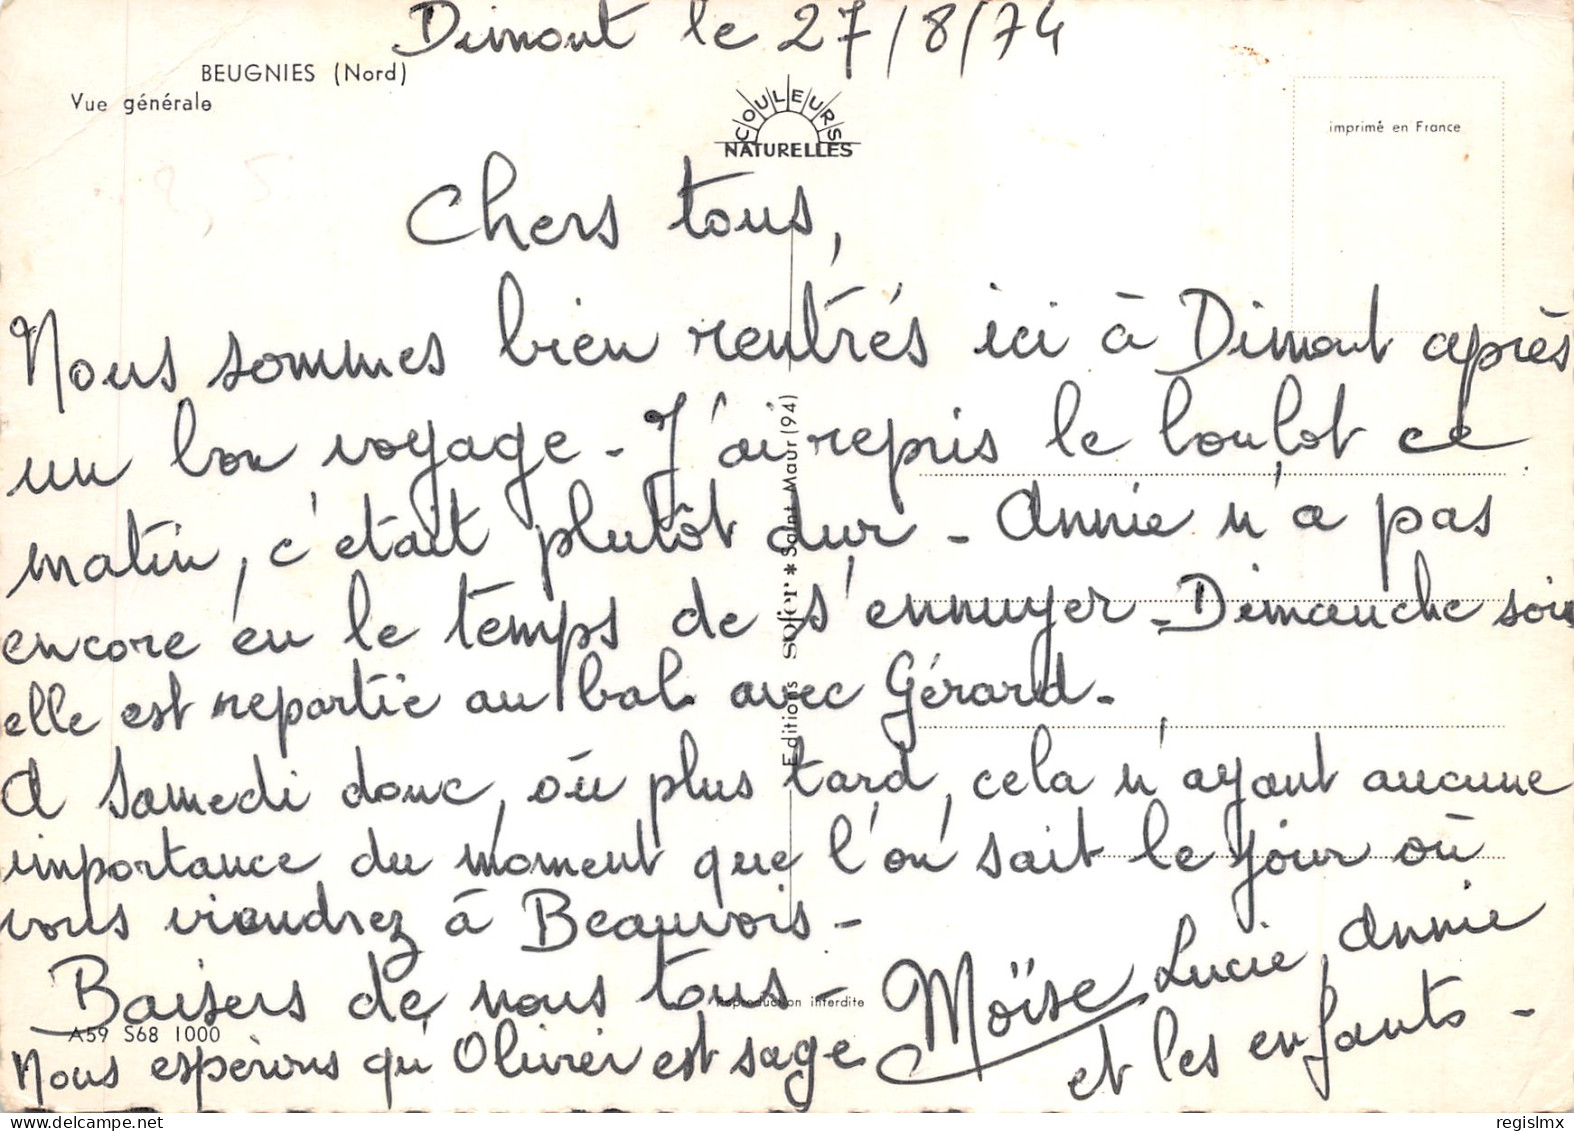 Dimont le 27/8/74
BEUGNIES (Nord)
Vue générale
COULEURS
NATURELLES
imprimé en France
Chers tous,
Nous sommes bien rentrés ici à Dimont après
un bon voyage - J'ai repris le boulot ce
matin, c'était plutôt dur - Annie n'a pas
encore eu le temps de s'ennuyer - Dimanche soir
elle est repartie au bal avec Gérard -
A samedi donc, où plus tard, cela n'ayant aucune
importance du moment que l'on sait le jour où
vous viendrez à Beauvois -
Baisers de nous tous - Moïse Lucie, Annie
et les enfants -
Nous espérons qu'Olivier est sage
Editions Sofer * Saint Maur (94)
Reproduction interdite
A59 S68 1000
regislmx